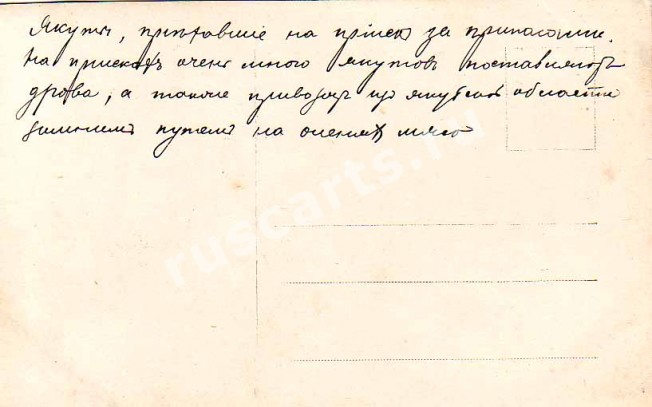 Якуты, пріѣхавшіе на пріискъ за припасами.
На пріискахъ очень много якутовъ поставляютъ
дрова, а также привозятъ изъ якутской области
зимнимъ путемъ на оленяхъ мясо
ruscarts.ru